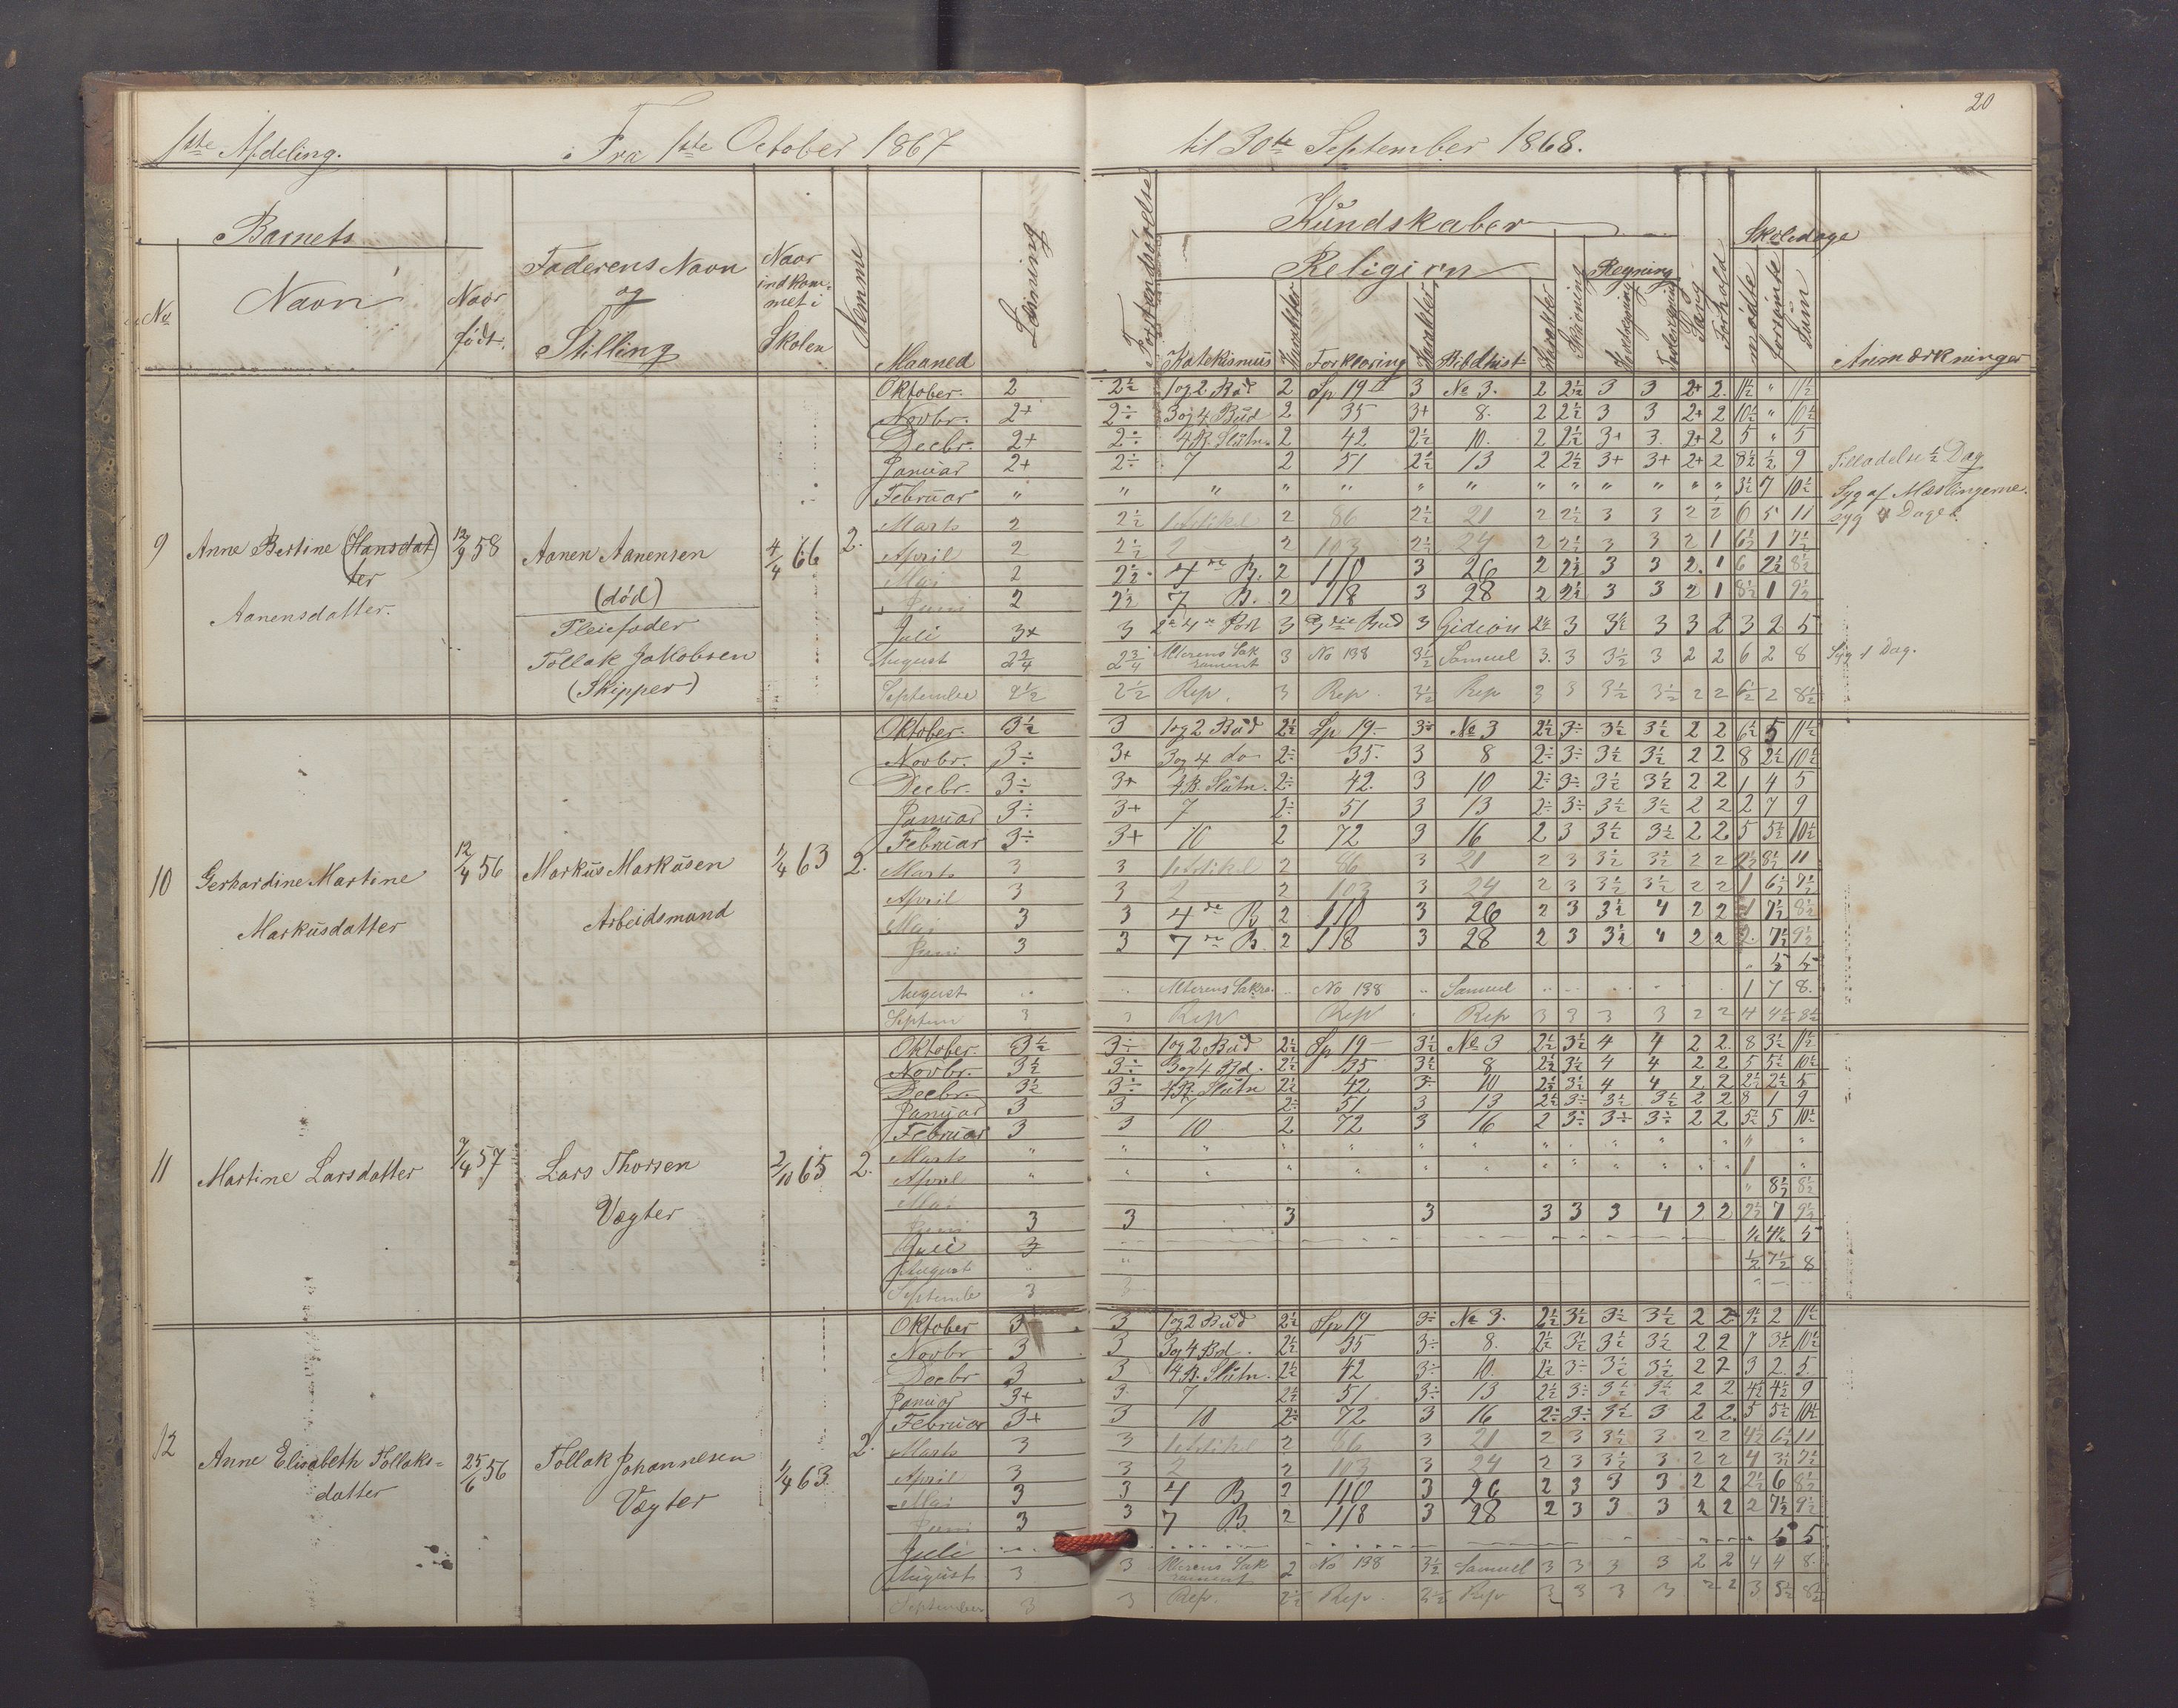 20
1ste Afdeling. Fra 1ste October 1867 til 30te September 1868.
Barnets
No Navn Naar født.
Faderens Navn og Stilling
Naar indkommet i Skolen
Nemme
Maaned
Læsning
Forstandsøvelse
Kundskaber
Religion
Katekismus Karakter Forklaring Karakter Bibelhist. Karakter
Skrivning
Regning
Hovedregning Tavleregning
Sang
Forhold
Skoledage
mødte forsømte Sum
Anmærkninger
9 Anne Bertine (Hansdatter) Aanensdatter. 12/9 58
Aanen Aanensen (død)
Pleiefader
Tollak Jakobsen (Skipper)
4/4 66 2.
Oktober. 2 2½ 1 og 2 Bud 2 Sp 19 3 No 3. 2 2½ 3 3 2+ 2. 11½ " 11½
Novbr. 2+ 2÷ 3 og 4 Bud 2 35 3+ 8. 2 2½ 3 3 2+ 2 10½ " 10½
Decbr. 2+ 2÷ 4 B. Slutn. 2 42 2½ 10. 2 2½ 3+ 3. 2+ 2 5 " 5
Januar 2+ 2÷ 7 2 51 2½ 13 2 2½ 3+ 3+ 2+ 2 8½ ½ 9 Tilladelse ½ Dag
Februar " " " " " " " " " " " " " 3½ 7 10½ Syg af Mæslingerne.
Marts 2 2½ 1 Artikel 2 86 2½ 21 2 2½ 3 3 2 2 6 5 11 syg 4 Dage
April 2 2½ 2 2 103 2½ 24 2 2½ 3 3 2 1 6½ 1 7½
Mai 2 2½ 4de B. 2 110 3 26 2 2½ 3 3 2. 1 6 2½ 8½
Juni 2 2½ 7 B. 2 118 3 28 2 2½ 3 3 2 1 8½ 1 9½
Juli 3+ 3 3 3die Bud 3 Gideon 2½ 3 3½ 3 3 2 3 2 5
August 2¾ 2¾ Alterens Sakrament 3 No 138 3½ Samuel 3. 3 3½ 3 2 2 6 2 8 Syg 1 Dag.
September 2½ 2½ Rep. 3 Rep. 3½ Rep 3 3 3½ 3½ 2 2 6½ 2 8½
10 Gerhardine Martine Markusdatter 12/4 56
Markus Markusen
Arbeidsmand
1/4 63 2.
Oktober. 3½ 3 1 og 2 Bud 2½ Sp 19 3÷ No 3 2½ 3÷ 3½ 3½ 2 2 6½ 5 11½
Novbr. 3÷ 3+ 3 og 4 do 2÷ 35. 3 8 2÷ 3÷ 3½ 3½ 2 2 8 2½ 10½
Decbr. 3÷ 3+ 4 B. Slutn. 2÷ 42. 3 10 2÷ 3÷ 3½ 3½ 2 2 1 4 5
Januar 3÷ 3+ 7 2÷ 51 3 13 2÷ 3÷ 3½ 3½ 2 2 2 7 9
Februar 3÷ 3+ 10 2 72 3 16 2 3 3½ 3½ 2 2. 5 5½ 10½
Marts 3 3 1 Artikel 2 86 3 21 2 3 3½ 3½ 2 2 2½ 8½ 11
April 3 3 2 2 103 3 24 2 3 3½ 3½ 2 2 1 6½ 7½
Mai 3 3 4de B 2 110 3 26 2 3 3½ 4 2 2 1 7½ 8½
Juni 3 3 7de B. 2 118 3 28 2 3 3½ 4 2 2 2. 7½ 9½
" 5 5
August " " Alterens Sakra. " No 138 " Samuel " " " " " " 1 7 8.
Septem 3 3 Rep Rep Rep 3 3 3 3 2 2 4 4½ 8½
11 Martine Larsdatter 7/4 57
Lars Thorsen
Vægter
2/10 65 2.
Oktober. 3½ 3÷ 1 og 2 Bud 2½ Sp 19 3½ No 3 2½ 3½ 4 4 2 2 8 3½ 11½
Novbr. 3½ 3÷ 3 og 4 Bd. 2½ 35 3½ 8 2½ 3½ 4 4 2 2 5 5½ 10½
Decbr. 3½ 3÷ 4 B. Slutn 2½ 42 3÷ 10 2½ 3½ 4 4 2 2 2½ 2½ 5
Januar 3 3 7 2÷ 51 3 13 2½ 3÷ 3½ 3½ 2 2 8 1 9
Februar 3 3 10 2 72 3 16 2 3÷ 3÷ 3÷ 2 2 5½ 5 10½
Marts "
April "
Mai " 8½ 8½
Juni 3 3 3 3 3 3 3 4 2 2 2½ 7 9½
Juli 3 ½ 4½ 5
August " " ½ 7½ 8
Septembe 3 3
12 Anne Elisabeth Tollaks=datter 25/6 56
Tollak Johannesen
Vægter
1/4 63 2.
Oktober 3 3 1 og 2 Bud 2½ Sp 19 3÷ No 3. 2½ 3½ 3½ 3½ 2 2 9½ 2 11½
Novbr 3 3 3 og 4 Bd. 2½ 35 3÷ 8. 2½ 3½ 3½ 3½ 2 2 7 3½ 10½
Decbr 3 3 4 B. Slutn. 2½ 42 3÷ 10. 2½ 3÷ 3½ 3½ 2 2 3 2. 5.
Januar 3+ 3 7 2½ 51 3÷ 13 2½ 3÷ 3½ 3½ 2 2 4½ 4½ 9
Februar 3+ 3 10 2÷ 72 3 16 2÷ 3÷ 3½ 3 2 2. 5 5½ 10½
Marts 3 3 1 Artikel 2 86 3 21 2 3 3½ 3 2 2 4½ 6½ 11
April 3 3 2 2 103 3 24 2 3 3½ 3 2 2 4 3½ 7½
Mai 3 3 4 B 2 110 3 26 2 3 3 3 2 2 2½ 6 8½
Juni 3 3 7 B. 2 118 3 28 2 3 3 3 2 2 2 7½ 9½
Juli 5 5
August 3 3 Alterens Sakrament 2 No 138 3½ Samuel 3 3 3 3 2 2 4 4 8
September 3 3 Rep. 2½ Rep. 3½ Rep 3 3 3 3 2 2 3 5½ 8½